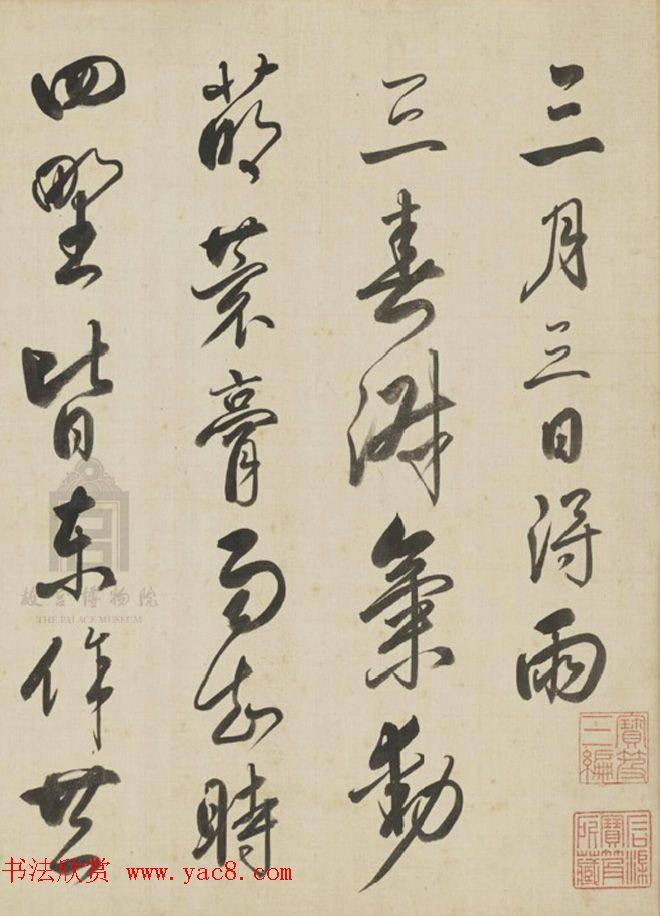 三月三日得雨
三春淑氣動
萌荄膏雨知時
四野皆東作無
寶笈三編
石渠寶笈所藏
故宮博物院
THE PALACE MUSEUM
书法欣赏 www.yac8.com